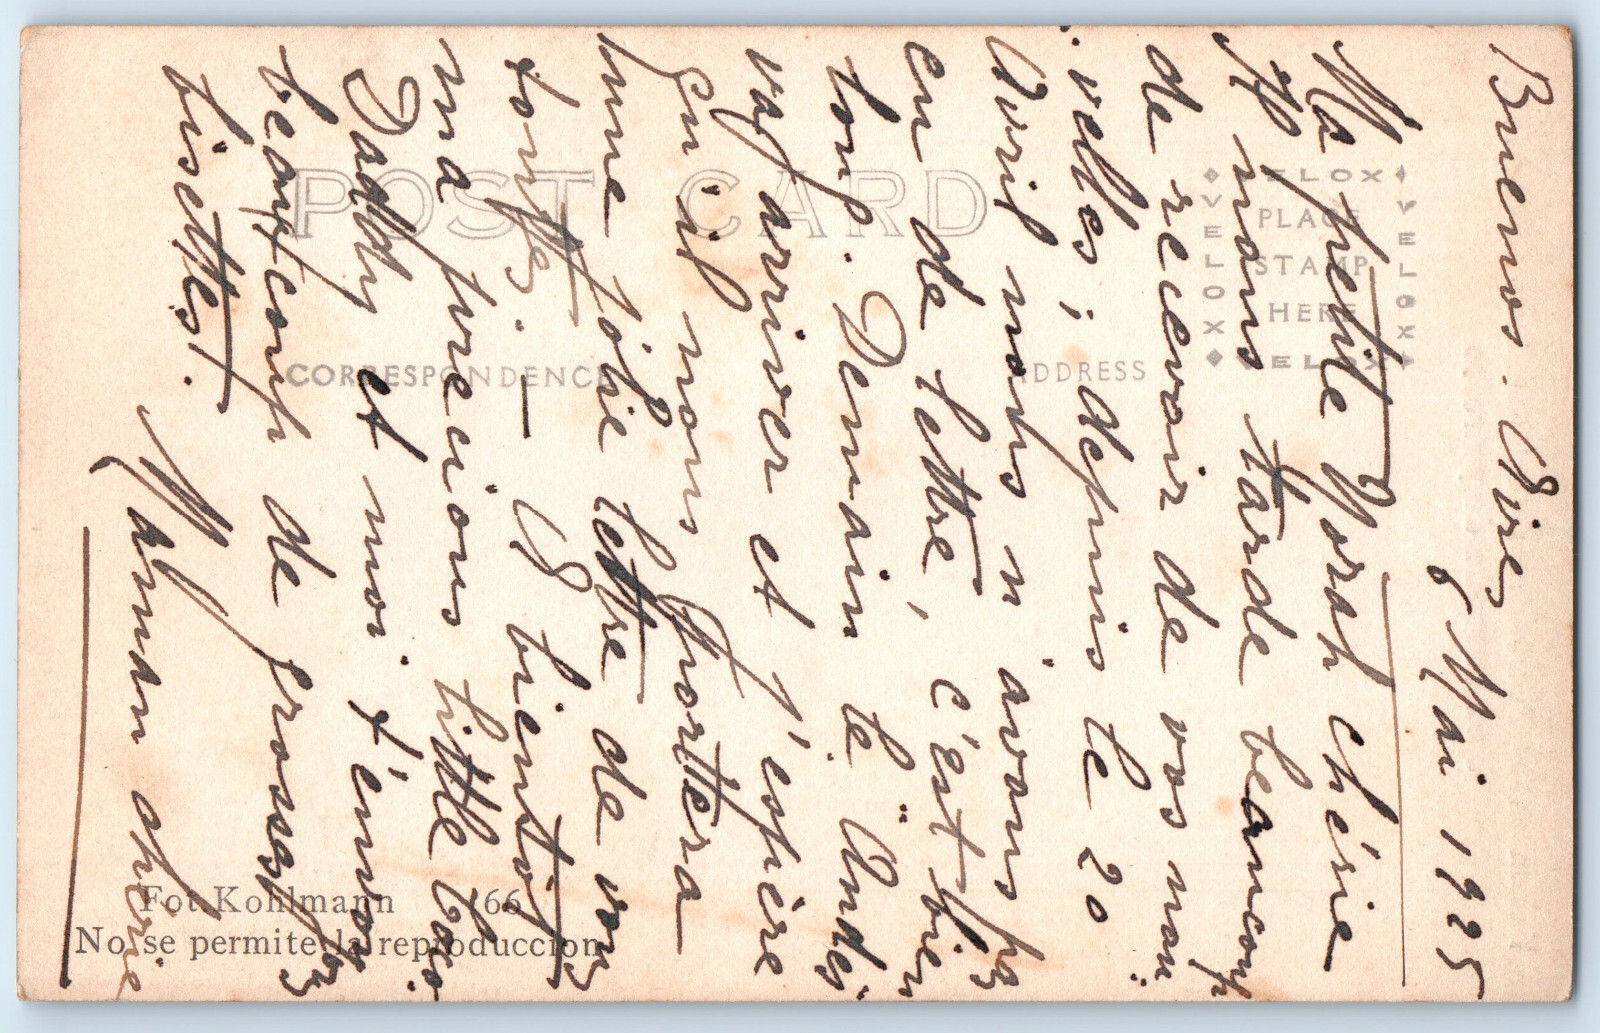 Buenos. Aires
6 Mai 1925
Ma petite Norah chérie
Il nous tarde beaucoup
de recevoir de vos nou
velles, depuis le 20
Avril nous n'avons pas
eu de lettre, c'est bien
long. Demain le "Andes"
va arriver et j'espère
qu'il nous apportera
une jolie lettre de vous
toutes. — A bientôt
ma precious little
Daddy et moi t'envoyons
beaucoup de grosses
bisettes.
Maman chérie
POST CARD
CORRESPONDENCE
ADDRESS
VELOX
VELOX
VELOX
VELOX
PLACE
STAMP
HERE
Fot. Kohlmann 66
No se permite la reproduccion